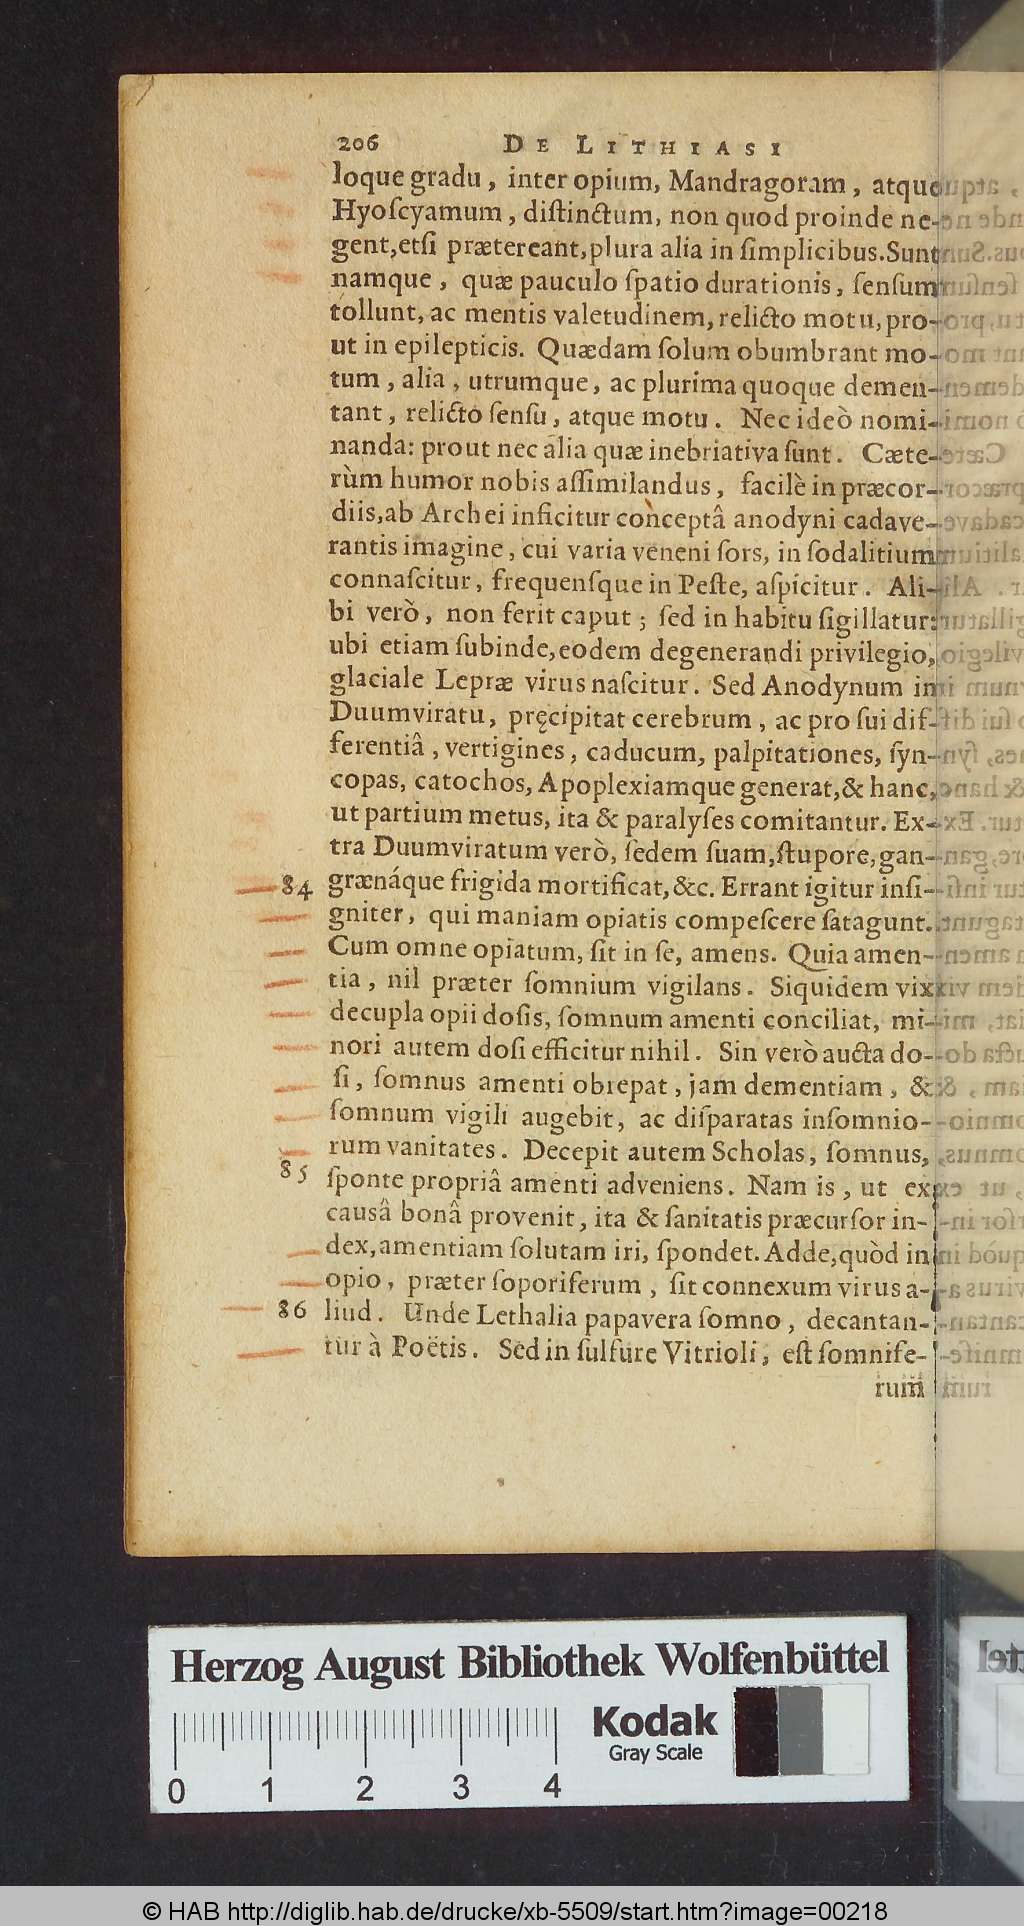 206 DE LITHIASI
loque gradu, inter opium, Mandragoram, atque
Hyoſcyamum, diſtinctum, non quod proinde ne-
gent, etſi prætereant, plura alia in ſimplicibus. Sunt
namque, quæ pauculo ſpatio durationis, ſenſum
tollunt, ac mentis valetudinem, relicto motu, pro-
ut in epilepticis. Quædam ſolum obumbrant mo-
tum, alia, utrumque, ac plurima quoque demen-
tant, relicto ſenſu, atque motu. Nec ideò nomi-
nanda: prout nec alia quæ inebriativa ſunt. Cæte-
rùm humor nobis aſſimilandus, facilè in præcor-
diis, ab Archei inficitur conceptâ anodyni cadave-
rantis imagine, cui varia veneni ſors, in ſodalitium
connaſcitur, frequenſque in Peſte, aſpicitur. Ali-
bi verò, non ferit caput; ſed in habitu ſigillatur:
ubi etiam ſubinde, eodem degenerandi privilegio,
glaciale Lepræ virus naſcitur. Sed Anodynum in
Duumviratu, pręcipitat cerebrum, ac pro ſui dif-
ferentiâ, vertigines, caducum, palpitationes, ſyn-
copas, catochos, Apoplexiamque generat, & hanc,
ut partium metus, ita & paralyſes comitantur. Ex-
tra Duumviratum verò, ſedem ſuam, ſtupore, gan-
84 grænáque frigida mortificat, &c. Errant igitur inſi-
gniter, qui maniam opiatis compeſcere ſatagunt.
Cum omne opiatum, ſit in ſe, amens. Quia amen-
tia, nil præter ſomnium vigilans. Siquidem vix
decupla opii doſis, ſomnum amenti conciliat, mi-
nori autem doſi efficitur nihil. Sin verò aucta do-
ſi, ſomnus amenti obrepat, jam dementiam, &
ſomnum vigili augebit, ac diſparatas inſomnio-
rum vanitates. Decepit autem Scholas, ſomnus,
85 ſponte propriâ amenti adveniens. Nam is, ut ex
causâ bonâ provenit, ita & ſanitatis præcurſor in-
dex, amentiam ſolutam iri, ſpondet. Adde, quòd in
opio, præter ſoporiferum, ſit connexum virus a-
86 liud. Unde Lethalia papavera ſomno, decantan-
tur à Poëtis. Sed in ſulfure Vitrioli, eſt ſomnife-
rum
Herzog August Bibliothek Wolfenbüttel
Kodak
Gray Scale
0 1 2 3 4
© HAB http://diglib.hab.de/drucke/xb-5509/start.htm?image=00218